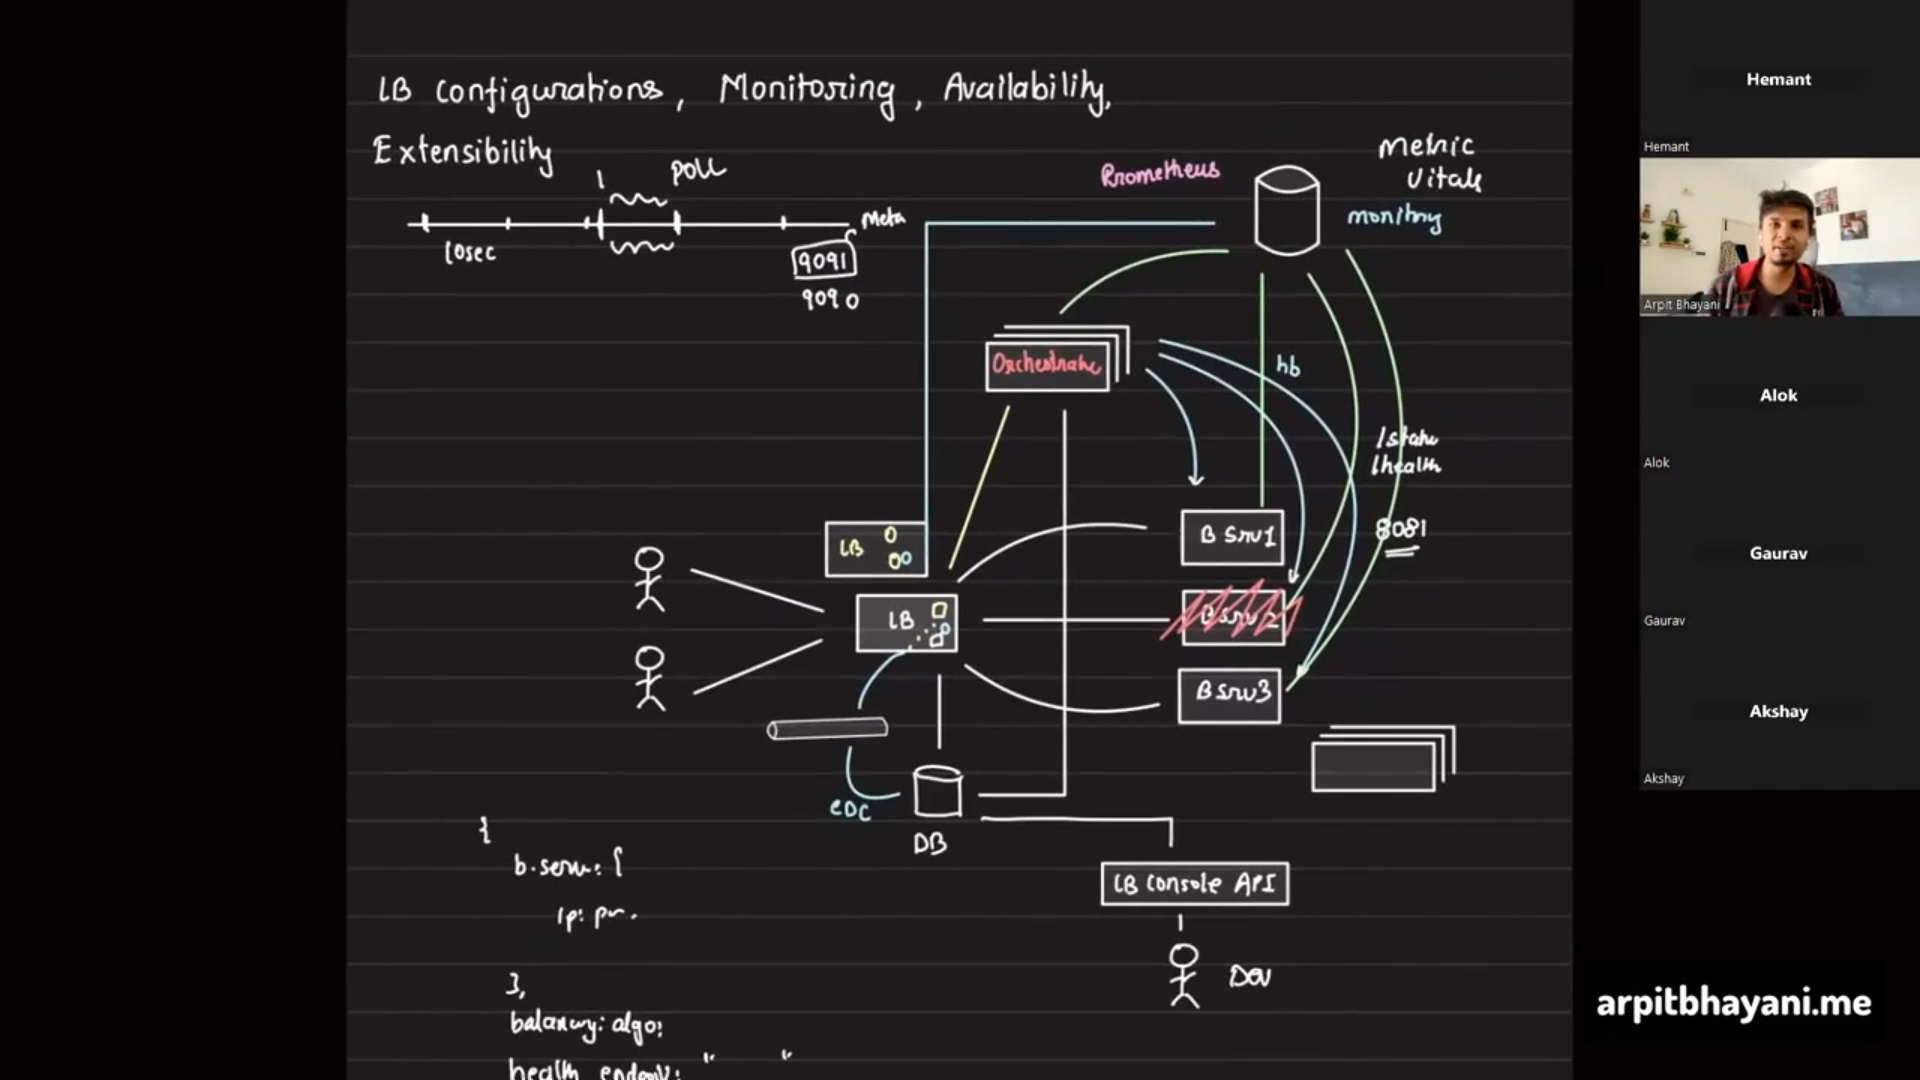 LB Configurations, Monitoring, Availability,
Extensibility
poll
10sec
Meta
9091
9090
Prometheus
Metric
Vitals
monitoring
Orchestrator
hb
/status
/health
8081
LB
LB
B Srv1
B Srv2
B Srv3
CDC
DB
LB Console API
Dev
{
b.serv: [
ip:
],
balancing: algo:
health_endpoint: " "
Hemant
Hemant
Arpit Bhayani
Alok
Alok
Gaurav
Gaurav
Akshay
Akshay
arpitbhayani.me